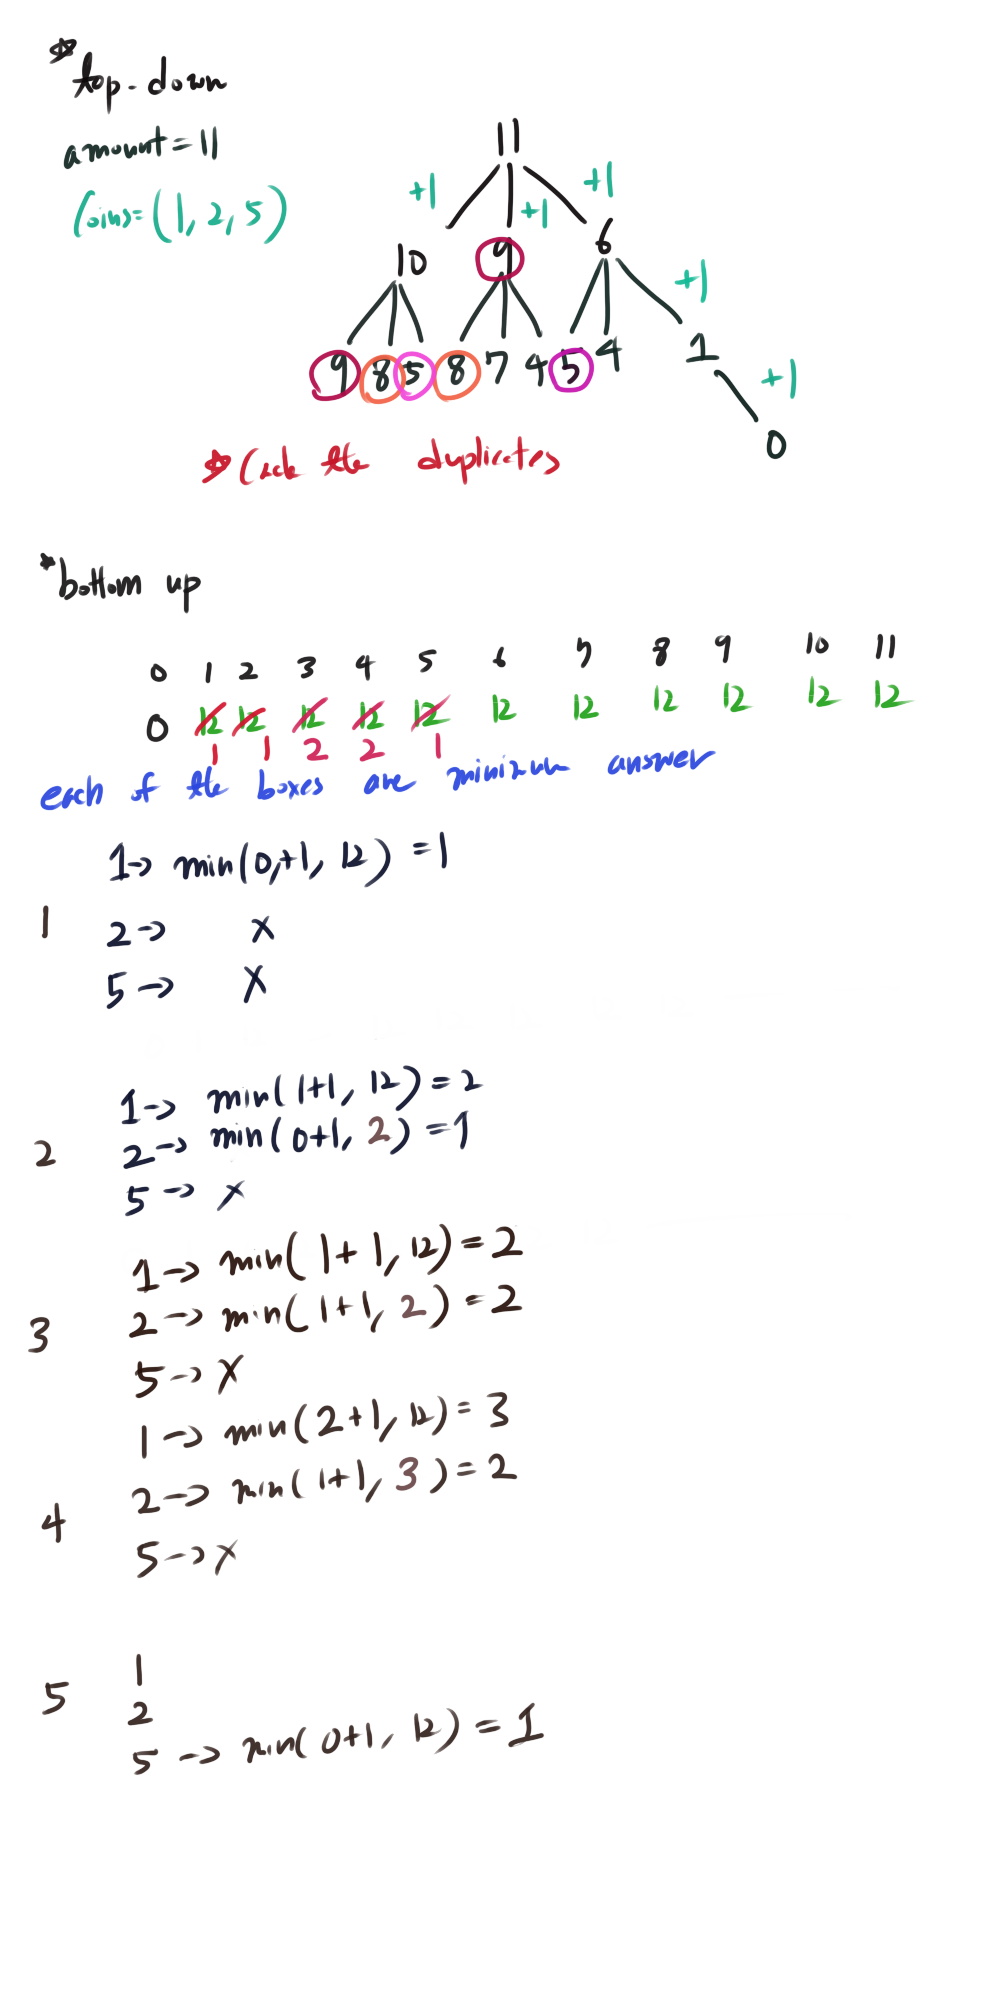 *top-down
amount=11
Coins=(1, 2, 5)
11
+1 +1 +1
10 9 6
+1
9 8 5 8 7 4 5 4 1
+1
0
the duplicates
*bottom up
0 1 2 3 4 5 6 7 8 9 10 11
0 12 12 12 12 12 12 12 12 12 12 12
1 1 2 2 1
each of the boxes are minimum answer
1-> min(0,+1, 12) =1
1
2-> x
5-> x
1-> min(1+1, 12)=2
2
2-> min(0+1, 2)=1
5-> x
1-> min(1+1, 12)=2
3
2-> min(1+1, 2)=2
5-> x
1-> min(2+1, 12)=3
4
2-> min(1+1, 3)=2
5-> x
1
5
2
5-> min(0+1, 12)=1